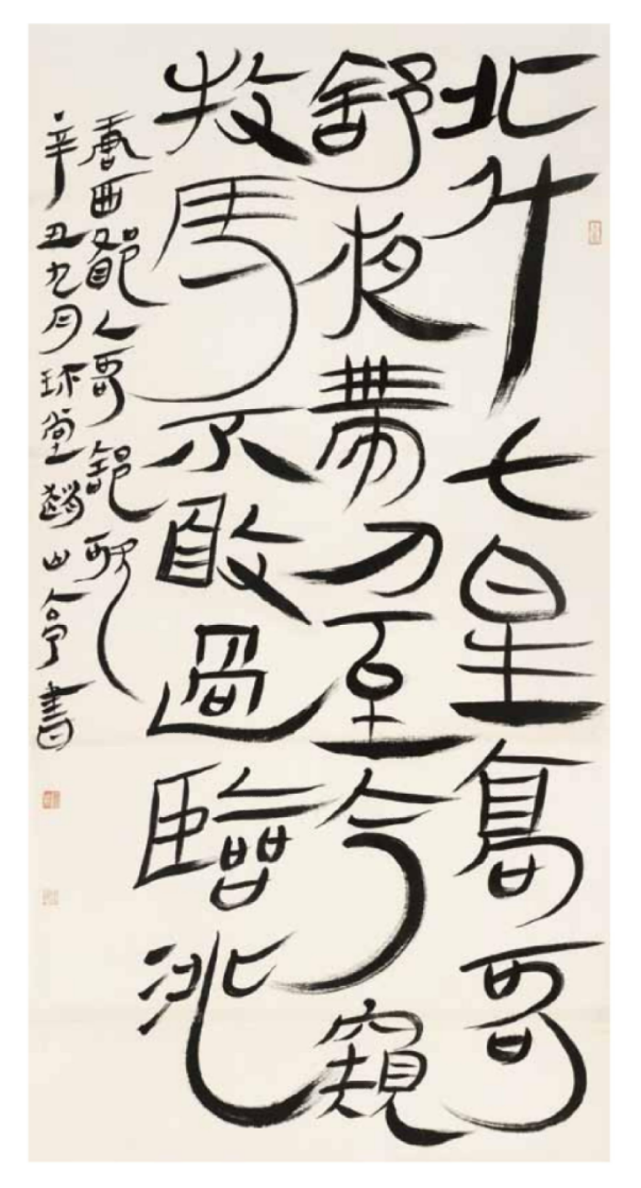 北斗七星高哥
舒夜帶刀至今窺
牧馬不敢過臨洮
唐西鄙人哥舒歌
辛丑九月环堂趙山亭書